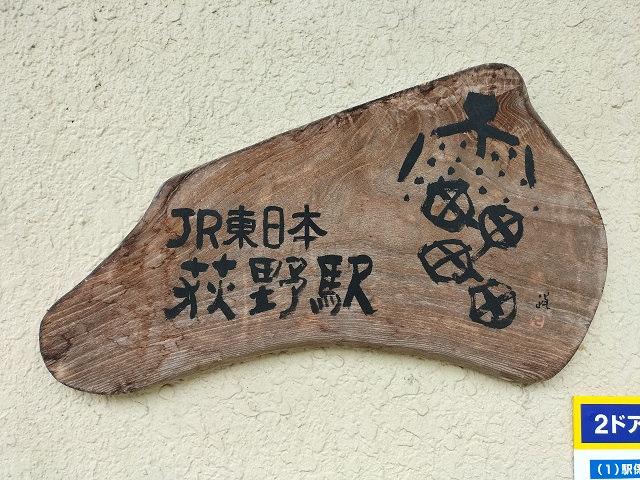 JR東日本
荻野駅
2ドア
(1)駅係